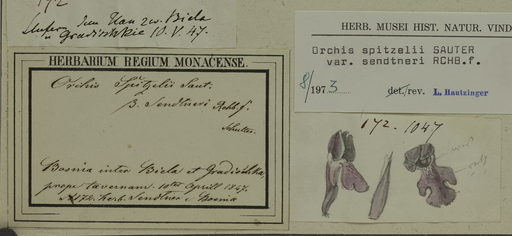 172
Ufern zum Han zw. Biela
u Gradishkie 10. V. 47.
HERBARIUM REGIUM MONACENSE.
Orchis Spitzelii Saut.
β. Sendtneri Rchb. f.
Bosnia inter Biela et Gradishka
prope tavernam. 10ten Aprill 1847.
N 172. herb. Sendtner e Bosnia
HERB. MUSEI HIST. NATUR. VIND
Orchis spitzelii SAUTER
var. sendtneri RCHB.f.
8/1973 det./rev. L. Hautzinger
172. 1047